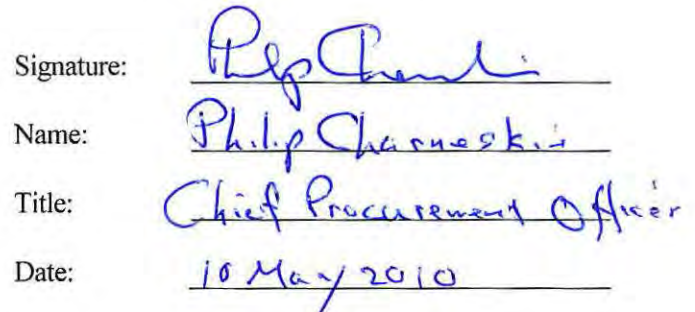 Signature: Philip Charneski
Name: Philip Charneskie
Title: Chief Procurement Officer
Date: 10 May 2010